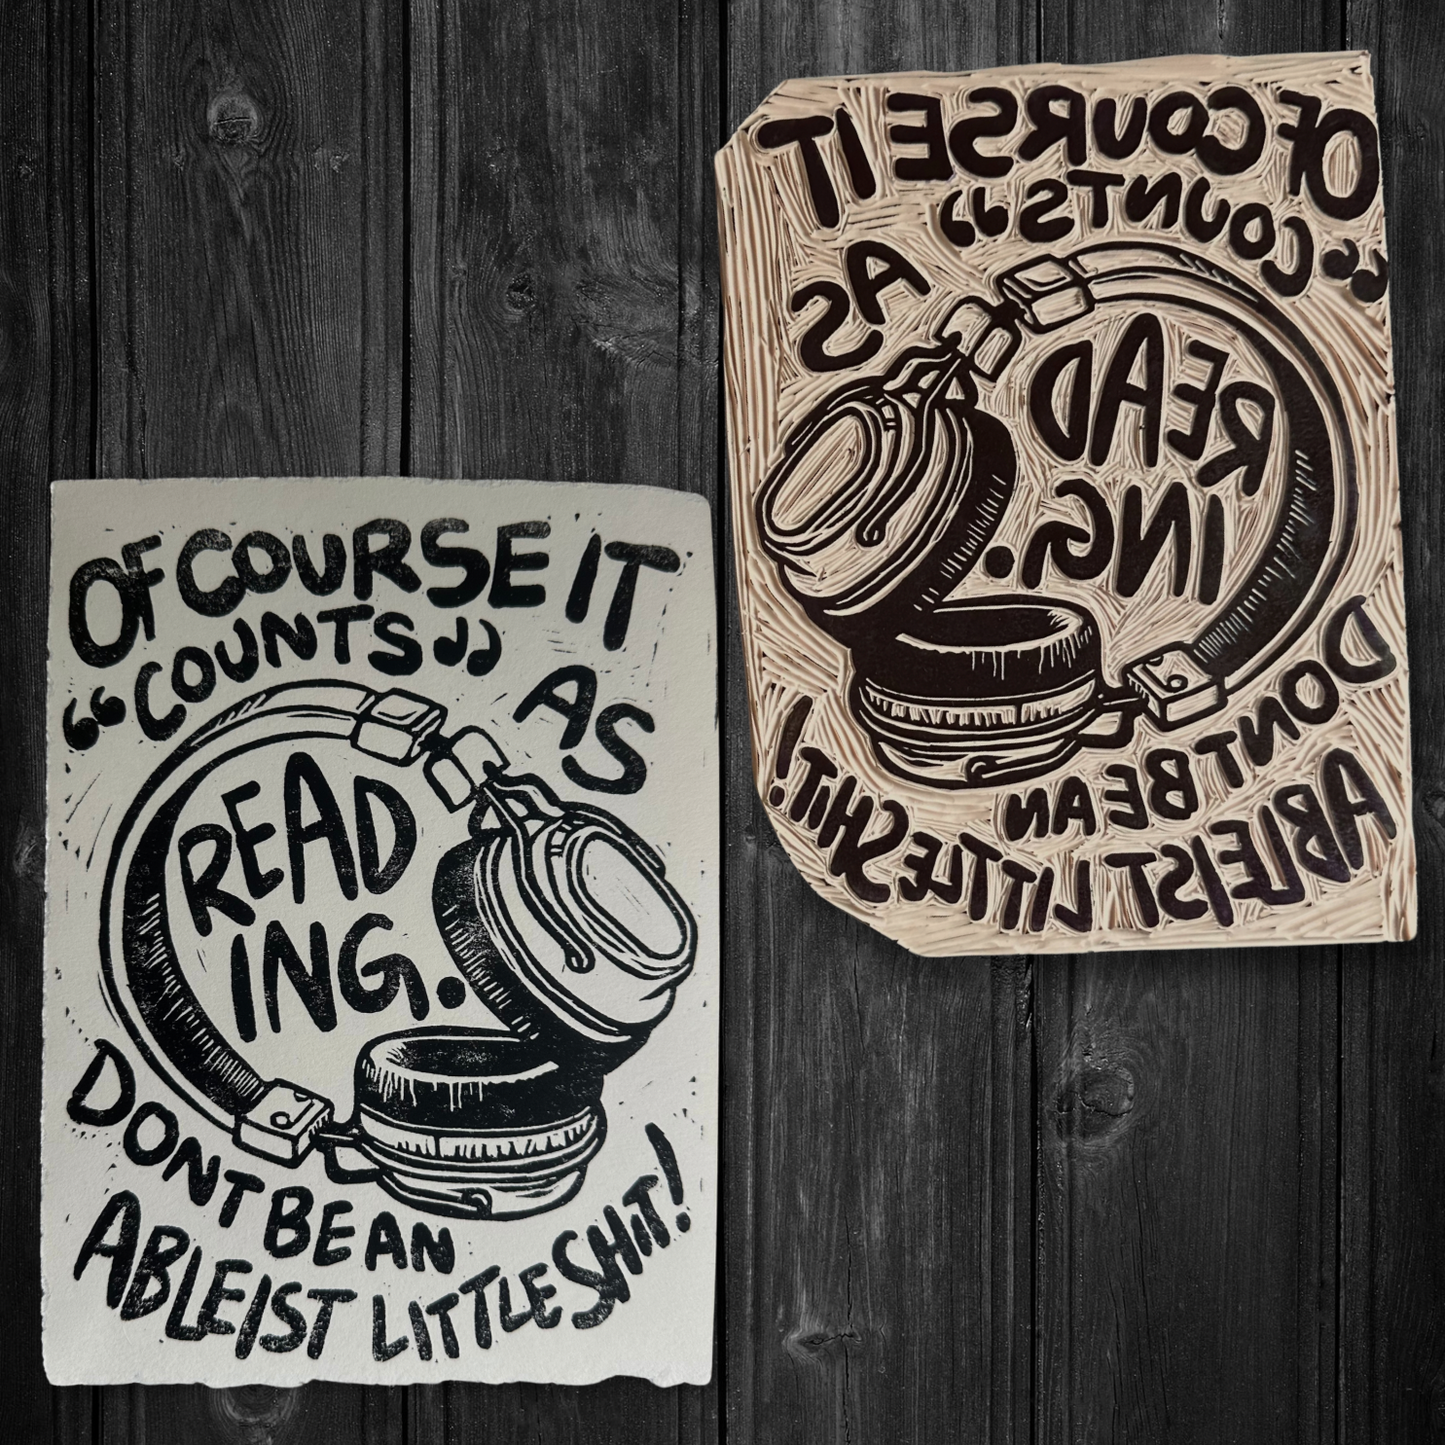 OF COURSE IT
“COUNTS” AS
READ
ING.
DONT BE AN
ABLEIST LITTLE SHIT!
OF COURSE IT
“COUNTS” AS
READ
ING.
DONT BE AN
ABLEIST LITTLE SHIT!